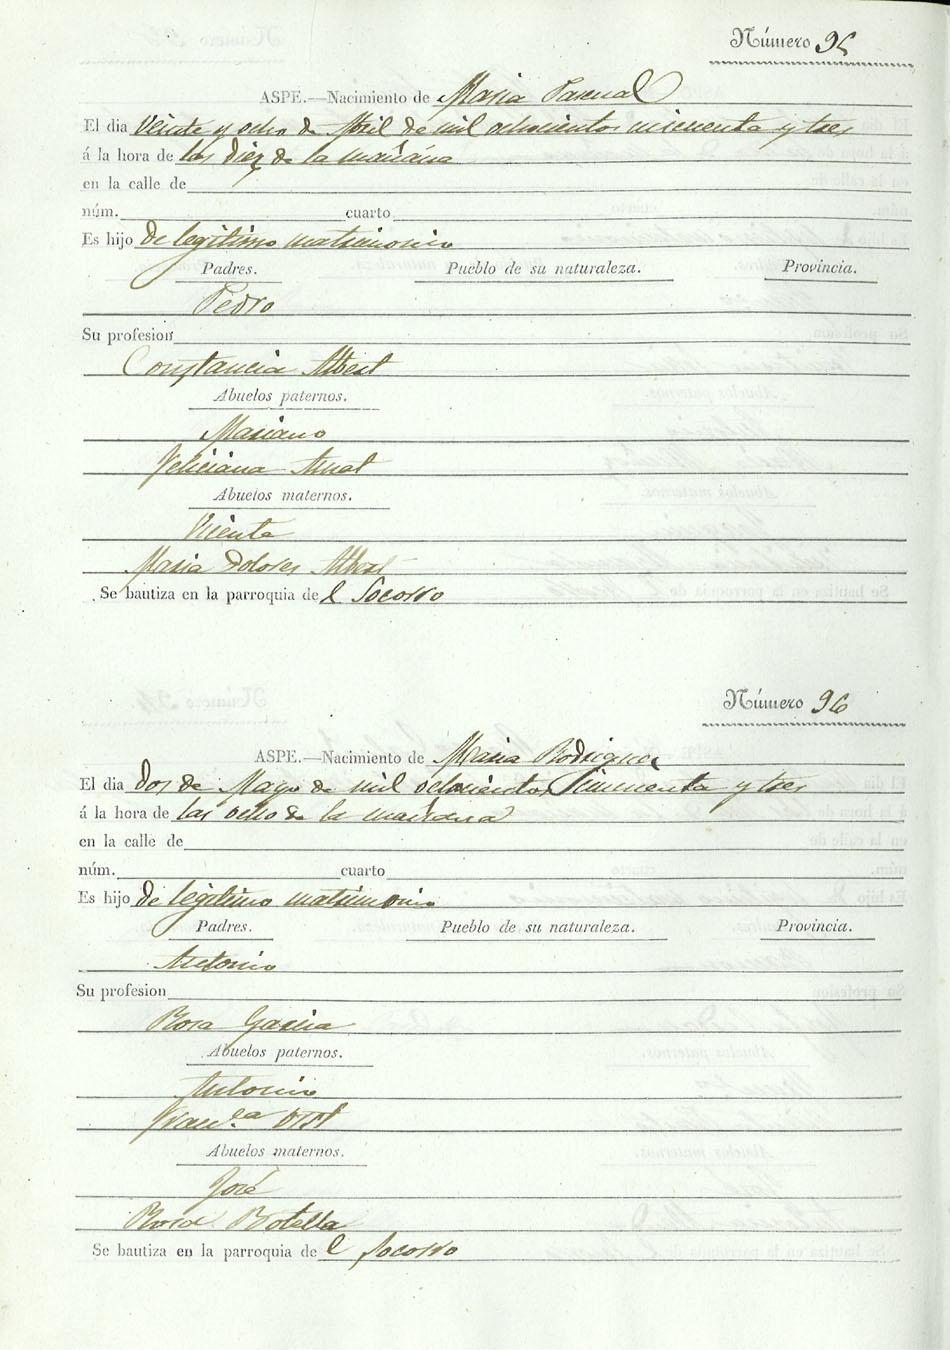 Número 95
ASPE.—Nacimiento de Maria Pascual
El dia Veinte y ocho de Abril de mil ochocientos cincuenta y tres
á la hora de las diez de la mañana
en la calle de
núm. cuarto
Es hijo de legitimo matrimonio
Padres. Pueblo de su naturaleza. Provincia.
Pedro
Su profesion
Constancia Albert
Abuelos paternos.
Mariano
Feliciana
Abuelos maternos.
Vicente
Maria Dolores Albert
Se bautiza en la parroquia de l Socorro
Número 96
ASPE.—Nacimiento de Maria Rodriguez
El dia dos de Mayo de mil ochocientos Cincuenta y tres
á la hora de las ocho de la mañana
en la calle de
núm. cuarto
Es hijo de legitimo matrimonio
Padres. Pueblo de su naturaleza. Provincia.
Antonio
Su profesion
Rosa Garcia
Abuelos paternos.
Antonio
Fran.ca
Abuelos maternos.
José
Rosa Botella
Se bautiza en la parroquia de l Socorro